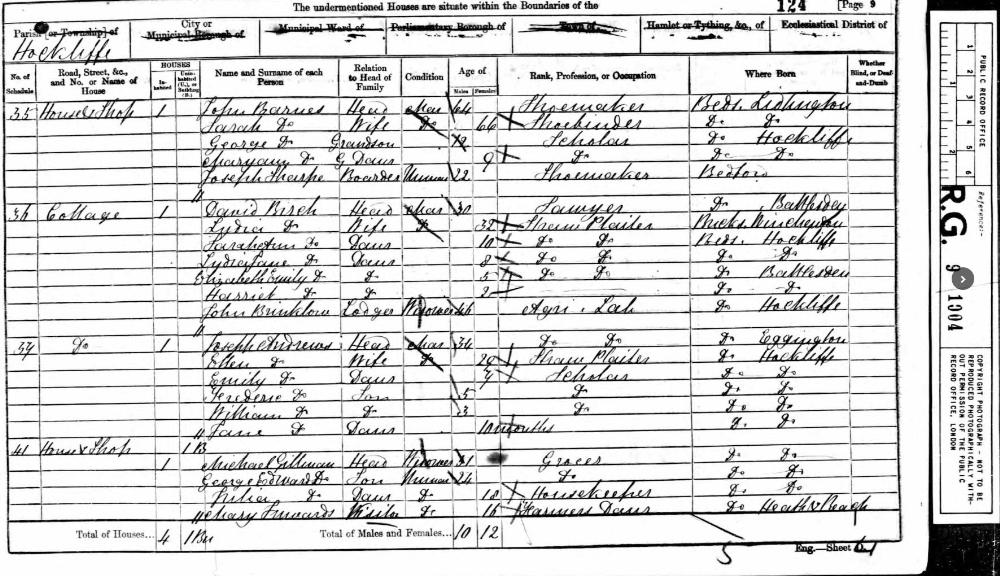 The undermentioned Houses are situate within the Boundaries of the
124
[Page 9
Parish [or Township] of
City or
Municipal Borough of
Municipal Ward of
Parliamentary Borough of
Town of
Hamlet or Tything, &c., of
Ecclesiastical District of
Hockliffe
No. of Schedule
Road, Street, &c., and No. or Name of House
HOUSES
In-habited
Unin-habited (U.), or Building (B.)
Name and Surname of each Person
Relation to Head of Family
Condition
Age of
Males
Females
Rank, Profession, or Occupation
Where Born
Whether Blind, or Deaf-and-Dumb
35 House & Shop 1 John Barnes Head Mar 64 Shoemaker Beds. Lidlington
Sarah Do Wife Do 66 Shoebinder Do Do
George Do Grandson 12 Scholar Do Hockliffe
Maryann Do G. Daur 9 Do Do Do
Joseph Sharpe Boarder Unmar 22 Shoemaker Bedford
36 Cottage 1 David Birch Head Mar 30 Sawyer Do Battlesden
Lydia Do Wife Do 32 Straw Plaiter Bucks Winchendon
Sarah Ann Do Daur 10 Do Do Beds. Hockliffe
Lydia Jane Do Daur 8 Do Do Do Do
Elizabeth Emily Do Do 5 Do Do Do Battlesden
Harriet Do Do 2 Do Do
John Brinklow Lodger Widower 46 Agri. Lab Do Hockliffe
37 Do 1 Joseph Andrews Head Mar 34 Do Do Do Eggington
Ellen Do Wife Do 29 Straw Plaiter Do Hockliffe
Emily Do Daur 7 Scholar Do Do
Frederic Do Son 5 Do Do Do
William Do Do 3 Do Do Do
Jane Do Daur 10 months Do Do
41 House & Shop 1B
1 Michael Gillman Head Widower 51 Grocer Do Do
George Edward Do Son Unmar 24 Do Do Do
Do Daur Do 18 Housekeeper Do Do
Mary Do 16 Farmers Daur Do Heath & Reach
Total of Houses... 4 1Bu Total of Males and Females... 10 12
5
Eng.—Sheet
PUBLIC RECORD OFFICE
1 2 3 4 5 6
Reference:-
R.G. 9 1004
COPYRIGHT PHOTOGRAPH - NOT TO BE REPRODUCED PHOTOGRAPHICALLY WITHOUT PERMISSION OF THE PUBLIC RECORD OFFICE, LONDON